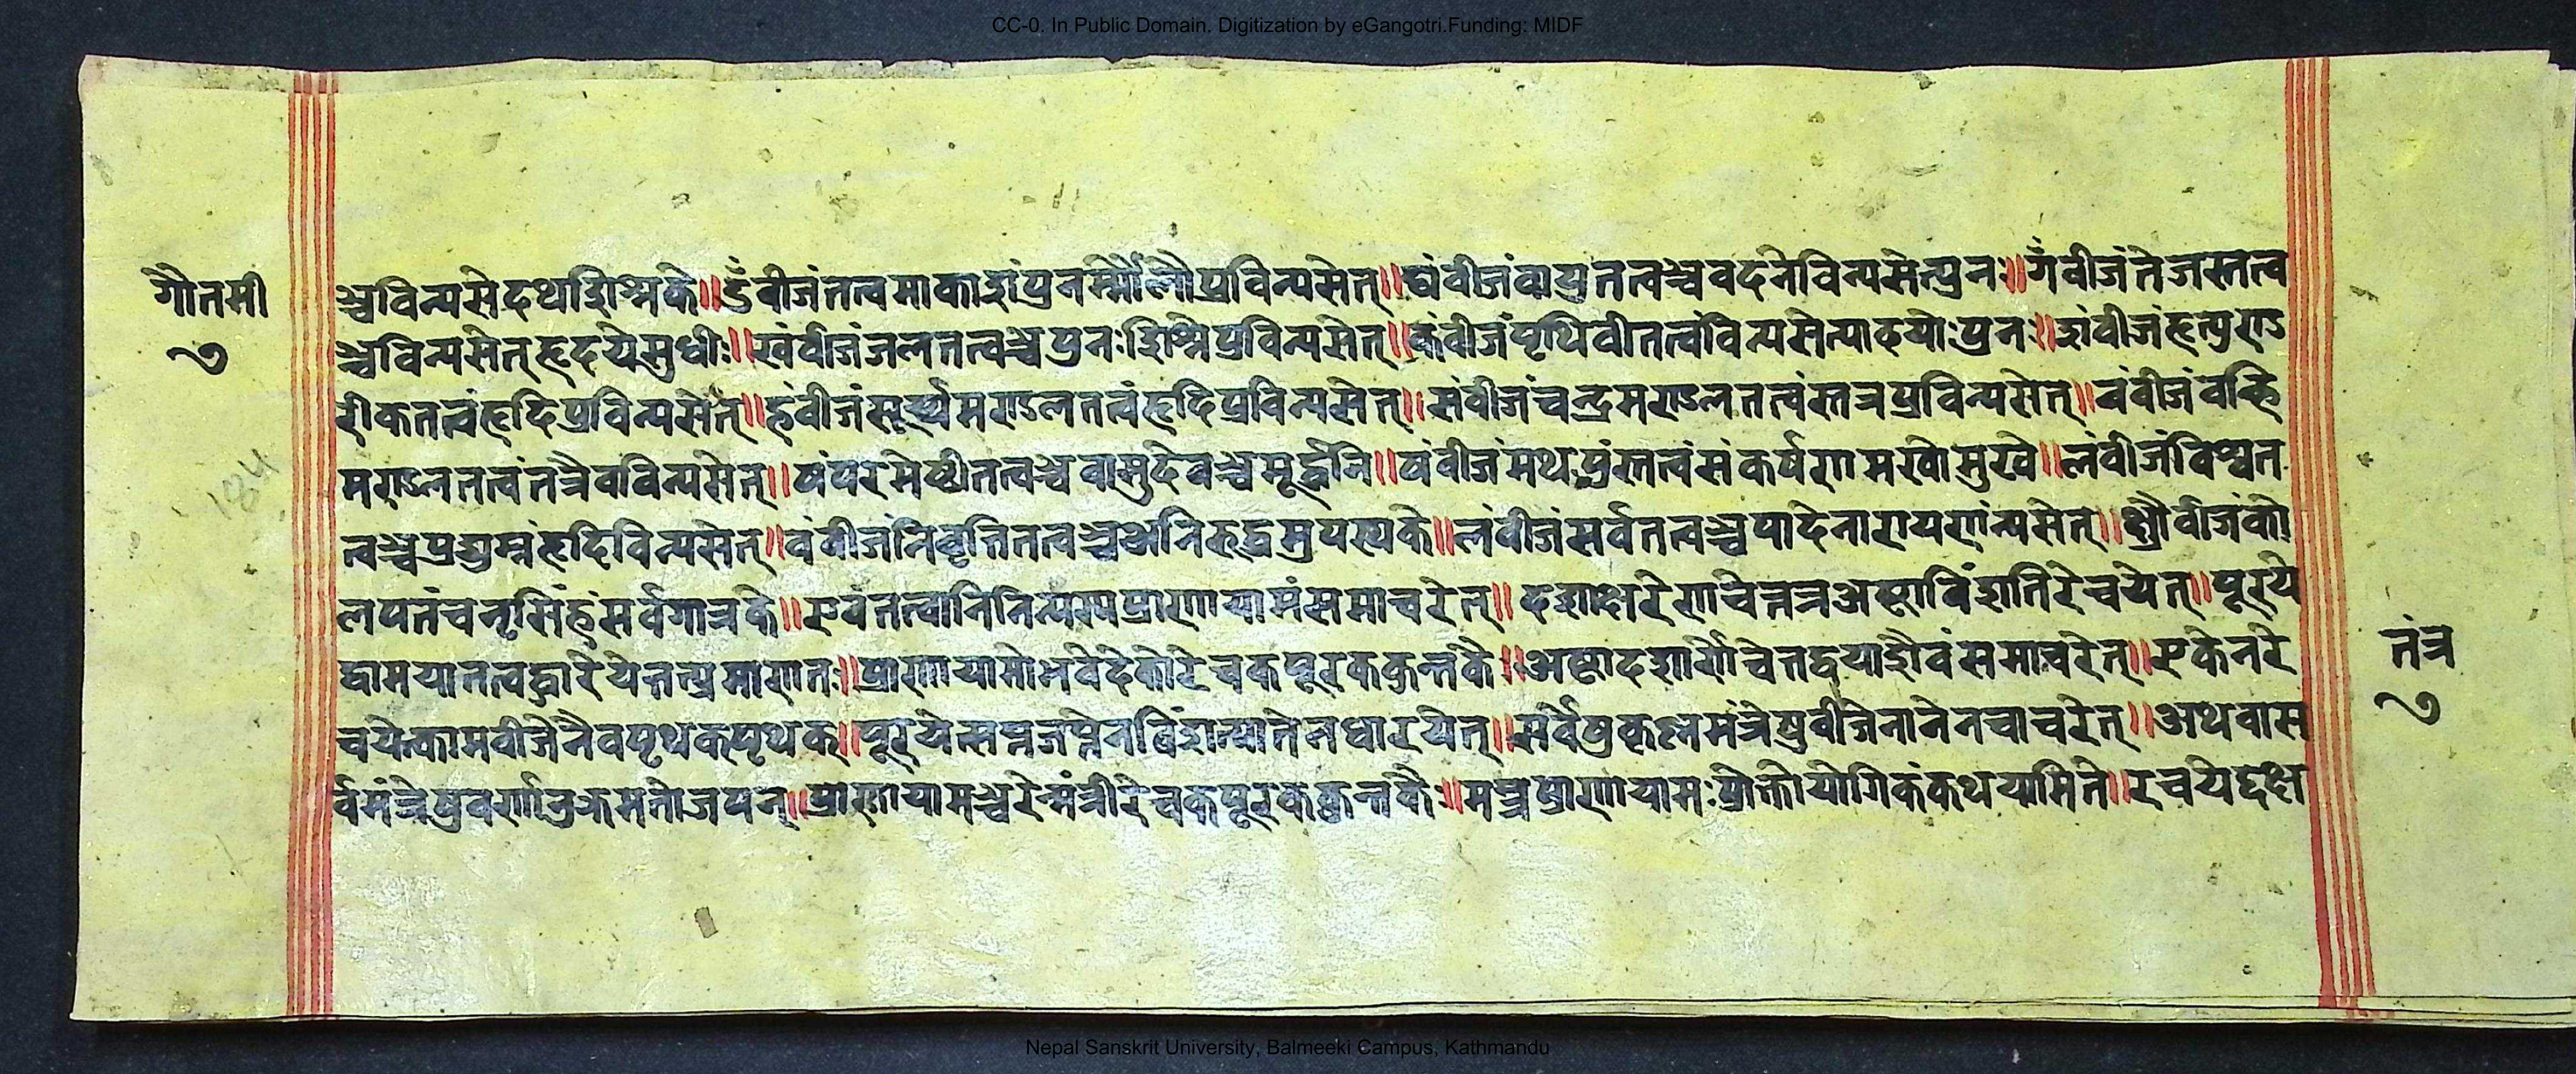 CC-0. In Public Domain. Digitization by eGangotri.Funding: MIDF
गौतमी
७
ञ्चविन्यसेदथशिश्नके॥ ङँबीजंतत्वमाकाशंपुनर्म्मौलौप्रविन्यसेत्॥ घंबीजंवायुतत्वञ्चवदनेविन्यसेत्पुनः॥ गँबीजंतेजस्तत्व
ञ्चविन्यसेत्हृदयेसुधीः॥ खंबीजंजलतत्वञ्चपुनःशिश्नेप्रविन्यसेत्॥ कंबीजंपृथिवीतत्वंविन्यसेत्पादयोःपुनः॥ शंबीजंहृत्पुण्ड
रीकतत्वंहृदिप्रविन्यसेत्॥ हंबीजंसूर्य्यमण्डलतत्वंहृदिप्रविन्यसेत्॥ संबीजंचन्द्रमण्डलतत्वंस्तत्रप्रविन्यसेत्॥ वंबीजंवह्नि
मण्डलतत्वंतत्रैवविन्यसेत्॥ षंपरमेष्ठीतत्वञ्चवासुदेवञ्चमूर्द्धनि॥ यंबीजंमथपुंस्तत्वंसंकर्षणमखोमुखे॥ लंबीजंविश्वत
त्वञ्चप्रद्युम्नंहृदिविन्यसेत्॥ वंबीजंनिवृत्तितत्वञ्चअनिरुद्धमुपस्थके॥ लंबीजंसर्वतत्वञ्चपादेनारायणंन्यसेत्॥ क्ष्रौंबीजंको
लपतंचनृसिंहंसर्वगात्रके॥ एवंतत्वानिविन्यस्यप्राणायामंसमाचरेत्॥ दशाक्षरेणचेत्तत्रअष्टाविंशतिरेचयेत्॥ पूरये
द्वामयातत्वद्धारयेत्तत्प्रमाणतः॥ प्राणायामोभवेदेकोरेचकपूरककुम्भकैः॥ अष्टादशार्णेचेत्तद्वयाशैवंसमाचरेत्॥ एकेनरे
चयेत्कामबीजेनैवपृथकपृथक्॥ पूरयेत्सप्तजप्तेनविंशत्यातेनधारयेत्॥ सर्वेषुकृष्णमंत्रेषुबीजेनानेनचाचरेत्॥ अथवास
र्वमंत्रेषुवर्णानुक्रमतोजपन्॥ प्राणायामञ्चरेन्मंत्रीरेचकपूरककुम्भकैः॥ मन्त्रप्राणायामःप्रोक्तोयोगिकंकथयामिते॥ रेचयेद्दक्ष
तंत्र
७
Nepal Sanskrit University, Balmeeki Campus, Kathmandu